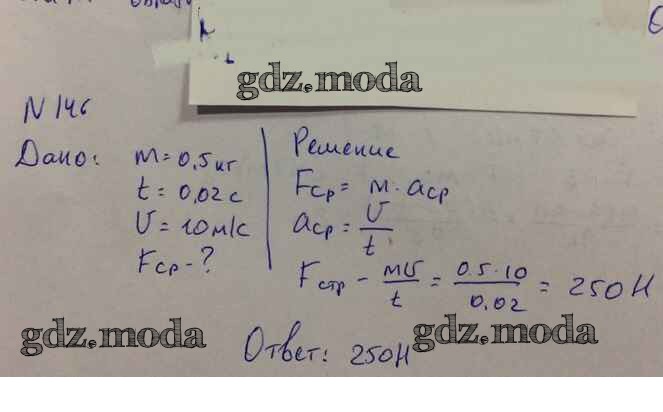 gdz.moda
N 146
Дано: m = 0,5 кг
t = 0,02 с
U = 10 м/с
Fср - ?
Решение
Fср = m · aср
aср = U/t
Fстр - mU/t = 0.5 · 10/0.02 = 250 Н
gdz.moda
gdz.moda
Ответ: 250Н